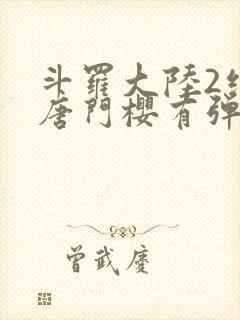 斗羅大陸2絕
唐門櫻有彈
曾武慶